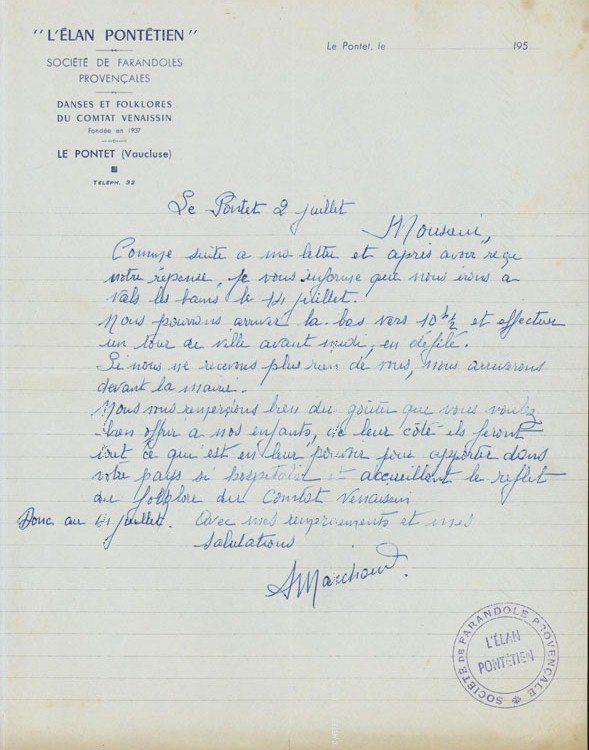 "L'ÉLAN PONTÉTIEN"
SOCIÉTÉ DE FARANDOLES
PROVENÇALES
DANSES ET FOLKLORES
DU COMTAT VENAISSIN
Fondée en 1937
LE PONTET (Vaucluse)
TÉLÉPH. 32
Le Pontet, le 195
Le Pontet 2 juillet
Monsieur,
Comme suite a ma lettre et après avoir reçu
votre réponse, je vous informe que nous irons a
Vals les bains le 14 juillet.
Nous pourrons arriver la-bas vers 10h½ et effectuer
un tour de ville avant midi, en défilé.
Si nous ne recevons plus rien de vous, nous arriverons
devant la mairie.
Nous vous remerçions bien du goûter que vous voulez
bien offrir a nos enfants, de leur côté ils feront
tout ce qui est en leur pouvoir pour apporter dans
votre pays si hospitalier et accueillant le reflet
du folklore du Comtat Venaissin
Donc au 14 juillet. Avec mes remerciements et mes
salutations
Marchand.
SOCIÉTÉ DE FARANDOLE PROVENÇALE
L'ÉLAN
PONTÉTIEN